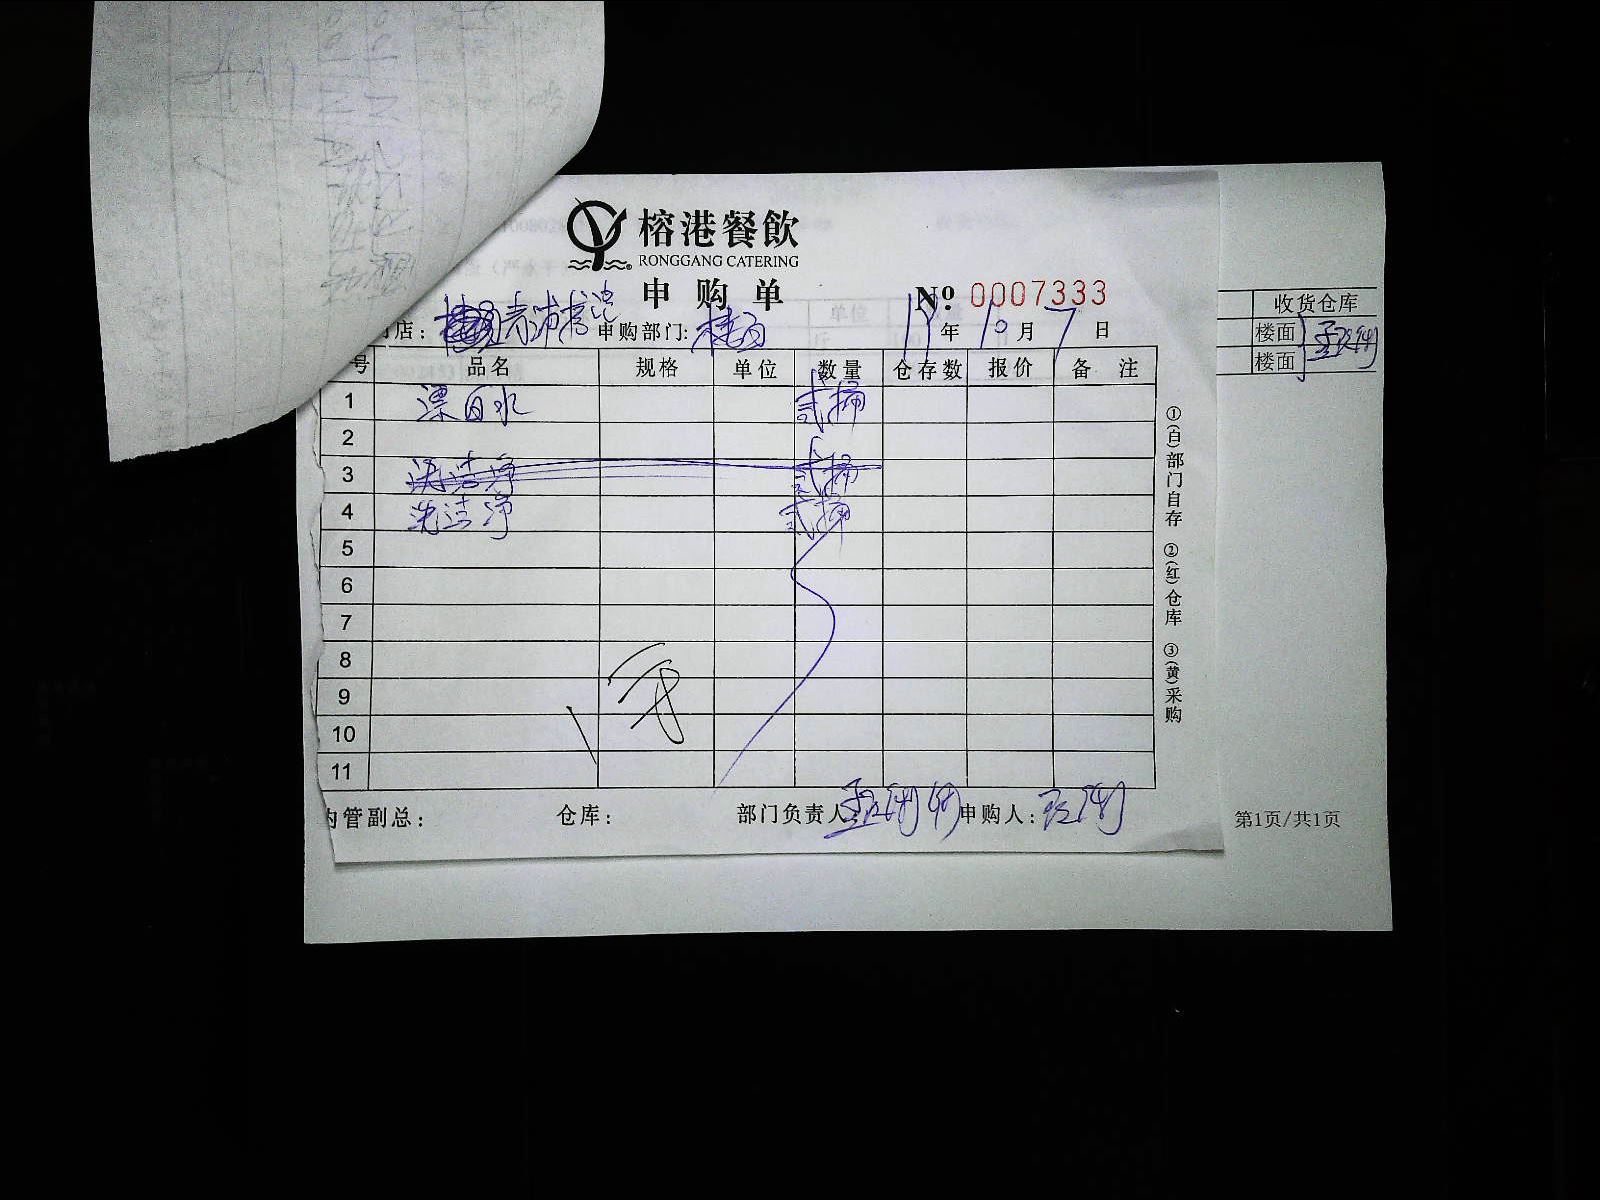 榕港餐飲
RONGGANG CATERING
申购单
№ 0007333
店: 青浦 申购部门: 楼面 年 10 月 7 日
号 品名 规格 单位 数量 仓存数 报价 备 注
1 漂白水 贰桶
2
3
4 洗洁净 贰桶
5
6
7
8
9
10
11
管副总: 仓库: 部门负责人: 申购人:
①(白)部门自存 ②(红)仓库 ③(黄)采购
收货仓库
楼面
楼面
第1页/共1页